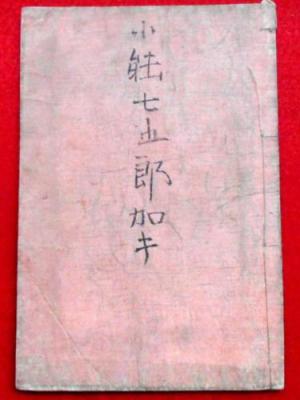 小能七五郎加キ